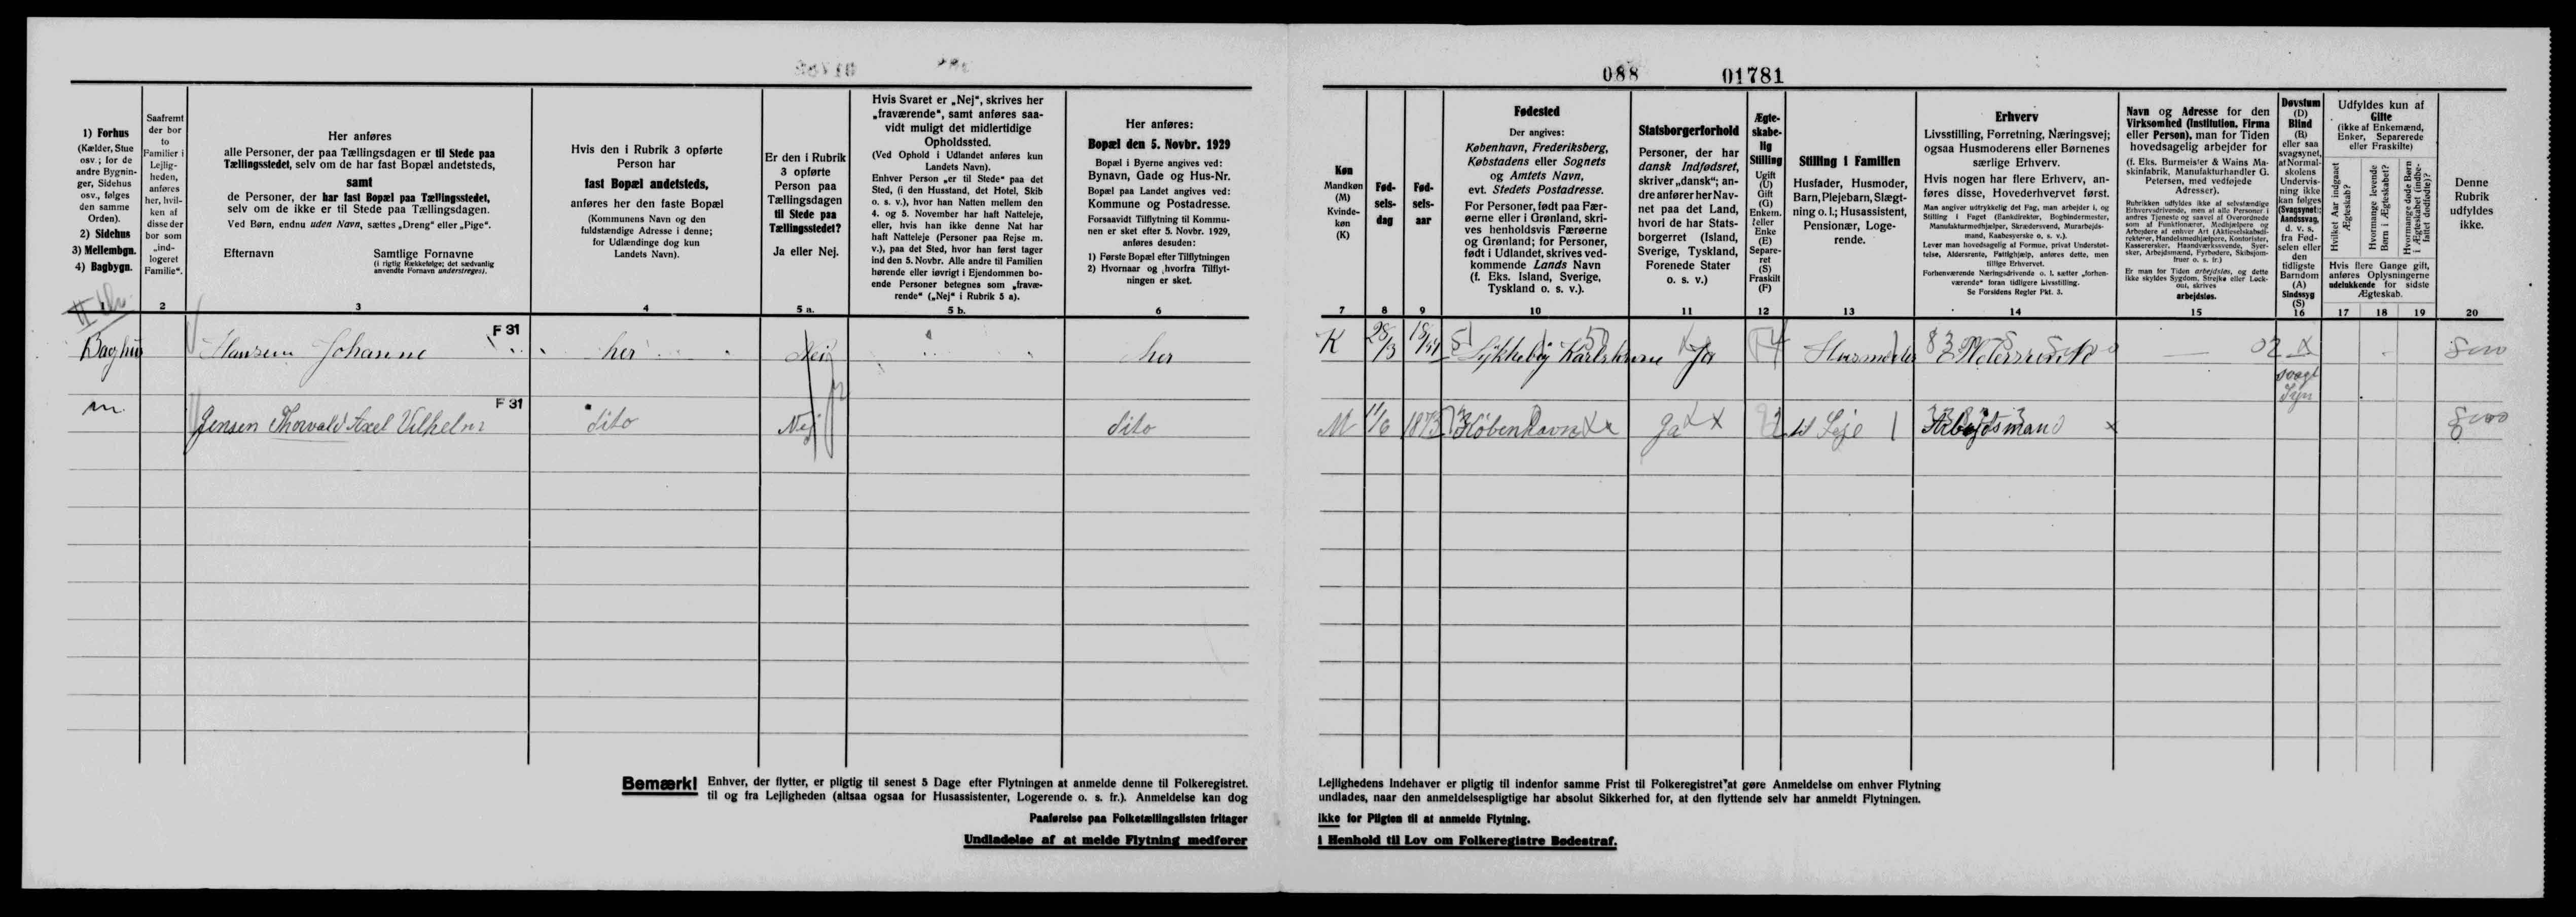 088 01781
1) Forhus
(Kælder, Stue
osv.; for de
andre Bygnin-
ger, Sidehus
osv., følges
den samme
Orden).
2) Sidehus
3) Mellembgn.
4) Bagbygn.
Saafremt
der bor
to
Familier i
Lejlig-
heden,
anføres
her, hvil-
ken af
disse der
bor som
„ind-
logeret
Familie“.
Her anføres
alle Personer, der paa Tællingsdagen er til Stede paa
Tællingsstedet, selv om de har fast Bopæl andetsteds,
samt
de Personer, der har fast Bopæl paa Tællingsstedet,
selv om de ikke er til Stede paa Tællingsdagen.
Ved Børn, endnu uden Navn, sættes „Dreng“ eller „Pige“.
Efternavn
Samtlige Fornavne
(i rigtig Rækkefølge; det sædvanlig
anvendte Fornavn understreges).
Hvis den i Rubrik 3 opførte
Person har
fast Bopæl andetsteds,
anføres her den faste Bopæl
(Kommunens Navn og den
fuldstændige Adresse i denne;
for Udlændinge dog kun
Landets Navn).
Er den i Rubrik
3 opførte
Person paa
Tællingsdagen
til Stede paa
Tællingsstedet?
Ja eller Nej.
Hvis Svaret er „Nej“, skrives her
„fraværende“, samt anføres saa-
vidt muligt det midlertidige
Opholdssted.
(Ved Ophold i Udlandet anføres kun
Landets Navn).
Enhver Person „er til Stede“ paa det
Sted, (i den Husstand, det Hotel, Skib
o. s. v.), hvor han Natten mellem den
4. og 5. November har haft Natteleje,
eller, hvis han ikke denne Nat har
haft Natteleje (Personer paa Rejse m.
v.), paa det Sted, hvor han først tager
ind den 5. Novbr. Alle andre til Familien
hørende eller iøvrigt i Ejendommen bo-
ende Personer betegnes som „fravæ-
rende“ („Nej“ i Rubrik 5 a).
Her anføres:
Bopæl den 5. Novbr. 1929
Bopæl i Byerne angives ved:
Bynavn, Gade og Hus-Nr.
Bopæl paa Landet angives ved:
Kommune og Postadresse.
Forsaavidt Tilflytning til Kommu-
nen er sket efter 5. Novbr. 1929,
anføres desuden:
1) Første Bopæl efter Tilflytningen
2) Hvornaar og hvorfra Tilflyt-
ningen er sket.
Køn
Mandkøn
(M)
Kvinde-
køn
(K)
Fød-
sels-
dag
Fød-
sels-
aar
Fødested
Der angives:
København, Frederiksberg,
Købstadens eller Sognets
og Amtets Navn,
evt. Stedets Postadresse.
For Personer, født paa Fær-
øerne eller i Grønland, skri-
ves henholdsvis Færøerne
og Grønland; for Personer,
født i Udlandet, skrives ved-
kommende Lands Navn
(f. Eks. Island, Sverige,
Tyskland o. s. v.).
Statsborgerforhold
Personer, der har
dansk Indfødsret,
skriver „dansk“; an-
dre anfører her Nav-
net paa det Land,
hvori de har Stats-
borgerret (Island,
Sverige, Tyskland,
Forenede Stater
o. s. v.)
Ægte-
skabe-
lig
Stilling
Ugift
(U)
Gift
(G)
Enkem.
eller
Enke
(E)
Separe-
ret
(S)
Fraskilt
(F)
Stilling i Familien
Husfader, Husmoder,
Barn, Plejebarn, Slægt-
ning o. l.; Husassistent,
Pensionær, Loge-
rende.
Erhverv
Livsstilling, Forretning, Næringsvej;
ogsaa Husmoderens eller Børnenes
særlige Erhverv.
Hvis nogen har flere Erhverv, an-
føres disse, Hovederhvervet først.
Man angiver udtrykkelig det Fag, man arbejder i, og
Stilling i Faget (Bankdirektør, Bogbindermester,
Manufakturmedhjælper, Skrædersvend, Murarbejds-
mand, Kaabesyerske o. s. v.).
Lever man hovedsagelig af Formue, privat Understøt-
telse, Aldersrente, Fattighjælp, anføres dette, men
tillige Erhvervet.
Forhenværende Næringsdrivende o. l. sætter „forhen-
værende“ foran tidligere Livsstilling.
Se Forsidens Regler Pkt. 3.
Navn og Adresse for den
Virksomhed (Institution, Firma
eller Person), man for Tiden
hovedsagelig arbejder for
(f. Eks. Burmeister & Wains Ma-
skinfabrik, Manufakturhandler G.
Petersen, med vedføjede
Adresser).
Rubrikken udfyldes ikke af selvstændige
Erhvervsdrivende, men af alle Personer i
andres Tjeneste og saavel af Overordnede
som af Funktionærer, Medhjælpere og
Arbejdere af enhver Art (Aktieselskabsdi-
rektører, Handelsmedhjælpere, Kontorister,
Kasserersker, Haandværkssvende, Syer-
sker, Arbejdsmænd, Fyrbødere, Skibsjom-
fruer o. s. fr.)
Er man for Tiden arbejdsløs, og dette
ikke skyldes Sygdom, Strejke eller Lock-
out, skrives
arbejdsløs.
Døvstum
(D)
Blind
(B)
eller saa
svagsynet,
at Normal-
skolens
Undervis-
ning ikke
kan følges
(Svagsynet);
Aandssvag,
d. v. s.
fra Fød-
selen eller
den
tidligste
Barndom
(A)
Sindssyg
(S)
Udfyldes kun af
Gifte
(ikke af Enkemænd,
Enker, Separerede
eller Fraskilte)
Hvilket Aar indgaaet
Ægteskabet?
Hvormange levende
Børn i Ægteskabet?
Hvormange døde Børn
i Ægteskabet (indbe-
fattet dødfødte)?
Hvis flere Gange gift,
anføres Oplysningerne
udelukkende for sidste
Ægteskab.
Denne
Rubrik
udfyldes
ikke.
1 2 3 4 5 a. 5 b. 6 7 8 9 10 11 12 13 14 15 16 17 18 19 20
Baghus Hansen Johanne F 31 her Nej her K 28/3 Lykkeby Karlskrona Ja Husmoder
svagt
Syn
Jensen Thorvald Axel Vilhelm F 31 dito Nej dito M 11/6 1873 København Ja Leje Arbejdsmand
Bemærk! Enhver, der flytter, er pligtig til senest 5 Dage efter Flytningen at anmelde denne til Folkeregistret.
til og fra Lejligheden (altsaa ogsaa for Husassistenter, Logerende o. s. fr.). Anmeldelse kan dog
Paaførelse paa Folketællingslisten fritager
Undladelse af at melde Flytning medfører
Lejlighedens Indehaver er pligtig til indenfor samme Frist til Folkeregistret at gøre Anmeldelse om enhver Flytning
undlades, naar den anmeldelsespligtige har absolut Sikkerhed for, at den flyttende selv har anmeldt Flytningen.
ikke for Pligten til at anmelde Flytning.
i Henhold til Lov om Folkeregistre Bødestraf.